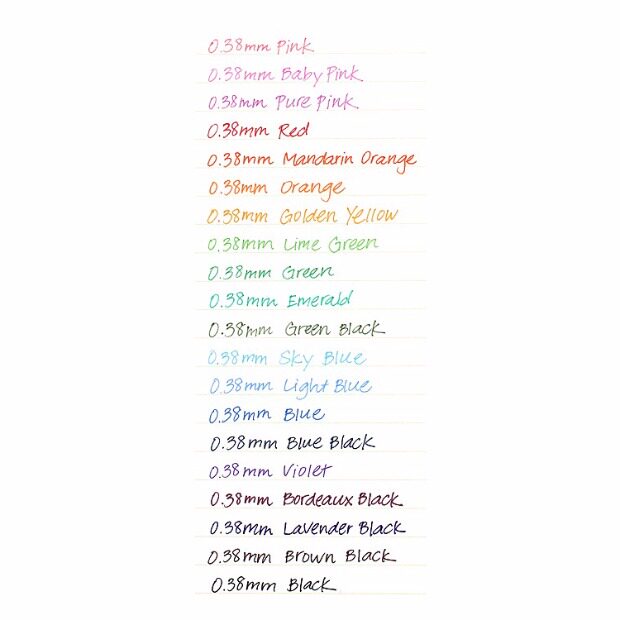 0.38mm Pink
0.38mm Baby Pink
0.38mm Pure Pink
0.38mm Red
0.38mm Mandarin Orange
0.38mm Orange
0.38mm Golden Yellow
0.38mm Lime Green
0.38mm Green
0.38mm Emerald
0.38mm Green Black
0.38mm Sky Blue
0.38mm Light Blue
0.38mm Blue
0.38mm Blue Black
0.38mm Violet
0.38mm Bordeaux Black
0.38mm Lavender Black
0.38mm Brown Black
0.38mm Black